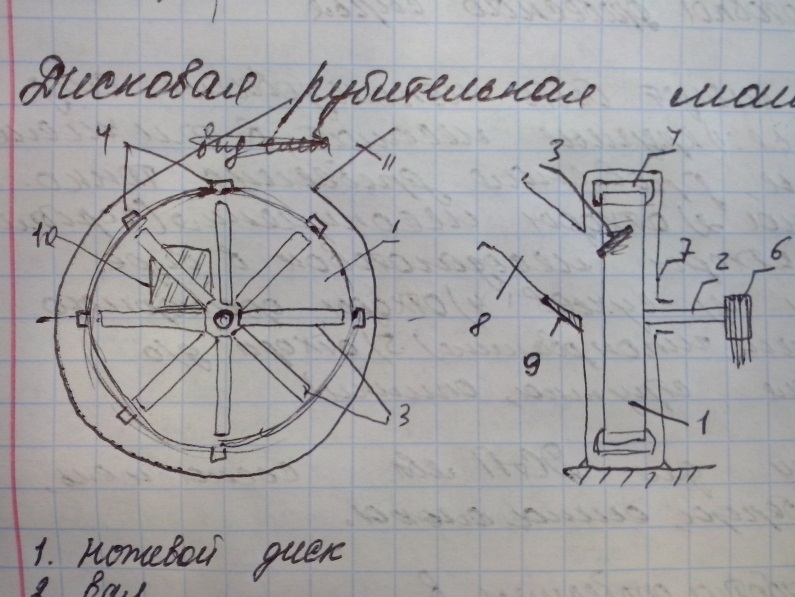 Дисковая рубительная маш
вид слева
4
11
3
4
10
1
7
2
6
8
9
3
1
1. Ножевой диск
2. Вал